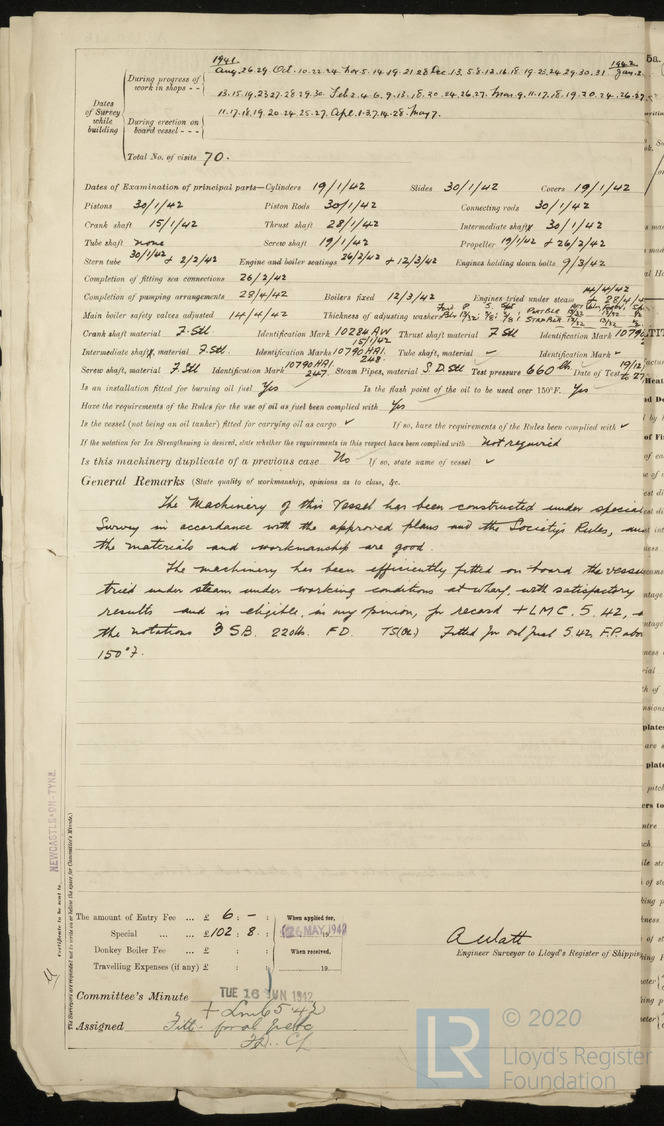 1941. 1942
During progress of work in shops - - Aug. 26. 29. Oct. 10. 22. 24. Nov. 5. 14. 19. 21. 28 Dec. 13. 5. 8. 12. 16. 18. 19. 23. 24. 29. 30. 31 Jan. 2.
13. 15. 19. 23 27. 28. 29. 30. Feb 2. 4. 6. 9. 13. 18. 20. 24. 26. 27. Mar. 9. 11. 17. 18. 19. 20. 24. 26. 27.
Dates of Survey while building
During erection on board vessel - - - 11. 17. 18. 19. 20. 24. 25. 27. Apl. 1. 3. 7. 14. 28. May 7.
Total No. of visits 70.
Dates of Examination of principal parts—Cylinders 19/1/42 Slides 30/1/42 Covers 19/1/42
Pistons 30/1/42 Piston Rods 30/1/42 Connecting rods 30/1/42
Crank shaft 15/1/42 Thrust shaft 28/1/42 Intermediate shaft 30/1/42
Tube shaft none Screw shaft 19/1/42 Propeller 19/1/42 + 26/2/42
Stern tube 30/1/42 + 2/2/42 Engine and boiler seatings 26/2/42 + 12/3/42 Engines holding down bolts 9/3/42
Completion of fitting sea connections 26/2/42
Completion of pumping arrangements 28/4/42 Boilers fixed 12/3/42 Engines tried under steam 14/4/42 + 28/4/4
Main boiler safety valves adjusted 14/4/42 Thickness of adjusting washers
Crank shaft material F. Stl. Identification Mark 10284 AW 15/1/42 Thrust shaft material F Stl Identification Mark 10790
Intermediate shaft, material F. Stl. Identification Marks 10790 HAI. 248. Tube shaft, material – Identification Mark –
Screw shaft, material F. Stl Identification Mark 10790 HAI 247. Steam Pipes, material S. D. Stl Test pressure 660 lbs. Date of Test 19/12/ to 27
Is an installation fitted for burning oil fuel Yes Is the flash point of the oil to be used over 150°F. Yes
Have the requirements of the Rules for the use of oil as fuel been complied with Yes
Is the vessel (not being an oil tanker) fitted for carrying oil as cargo ✓ If so, have the requirements of the Rules been complied with ✓
If the notation for Ice Strengthening is desired, state whether the requirements in this respect have been complied with Not required
Is this machinery duplicate of a previous case No If so, state name of vessel ✓
General Remarks (State quality of workmanship, opinions as to class, &c.
The Machinery of this Vessel has been constructed under special
Survey in accordance with the approved plans and the Society's Rules, and
the materials and workmanship are good.
The machinery has been efficiently fitted on board the vessel
tried under steam under working conditions at wharf, with satisfactory
results and is eligible, in my opinion, for record + LMC. 5. 42,
the notations 3 S.B. 220 lbs. F D. TS(CL) Fitted for oil fuel 5.42 F.P. abov
150°F.
NEWCASTLE-ON-TYNE.
Certificate to be sent to
(The Surveyors are requested not to write on or below the space for Committee's Minute.)
The amount of Entry Fee ... £ 6 : – : When applied for,
Special ... ... £ 102 : 8 : 26 MAY 1942
Donkey Boiler Fee ... £ : : When received,
Travelling Expenses (if any) £ : : 19
A Watt
Engineer Surveyor to Lloyd's Register of Shippin
Committee's Minute TUE 16 JUN 1942
Assigned + Lmc 5 42
Fitted for oil fuel
FD. CL
LR © 2020
Lloyd's Register
Foundation